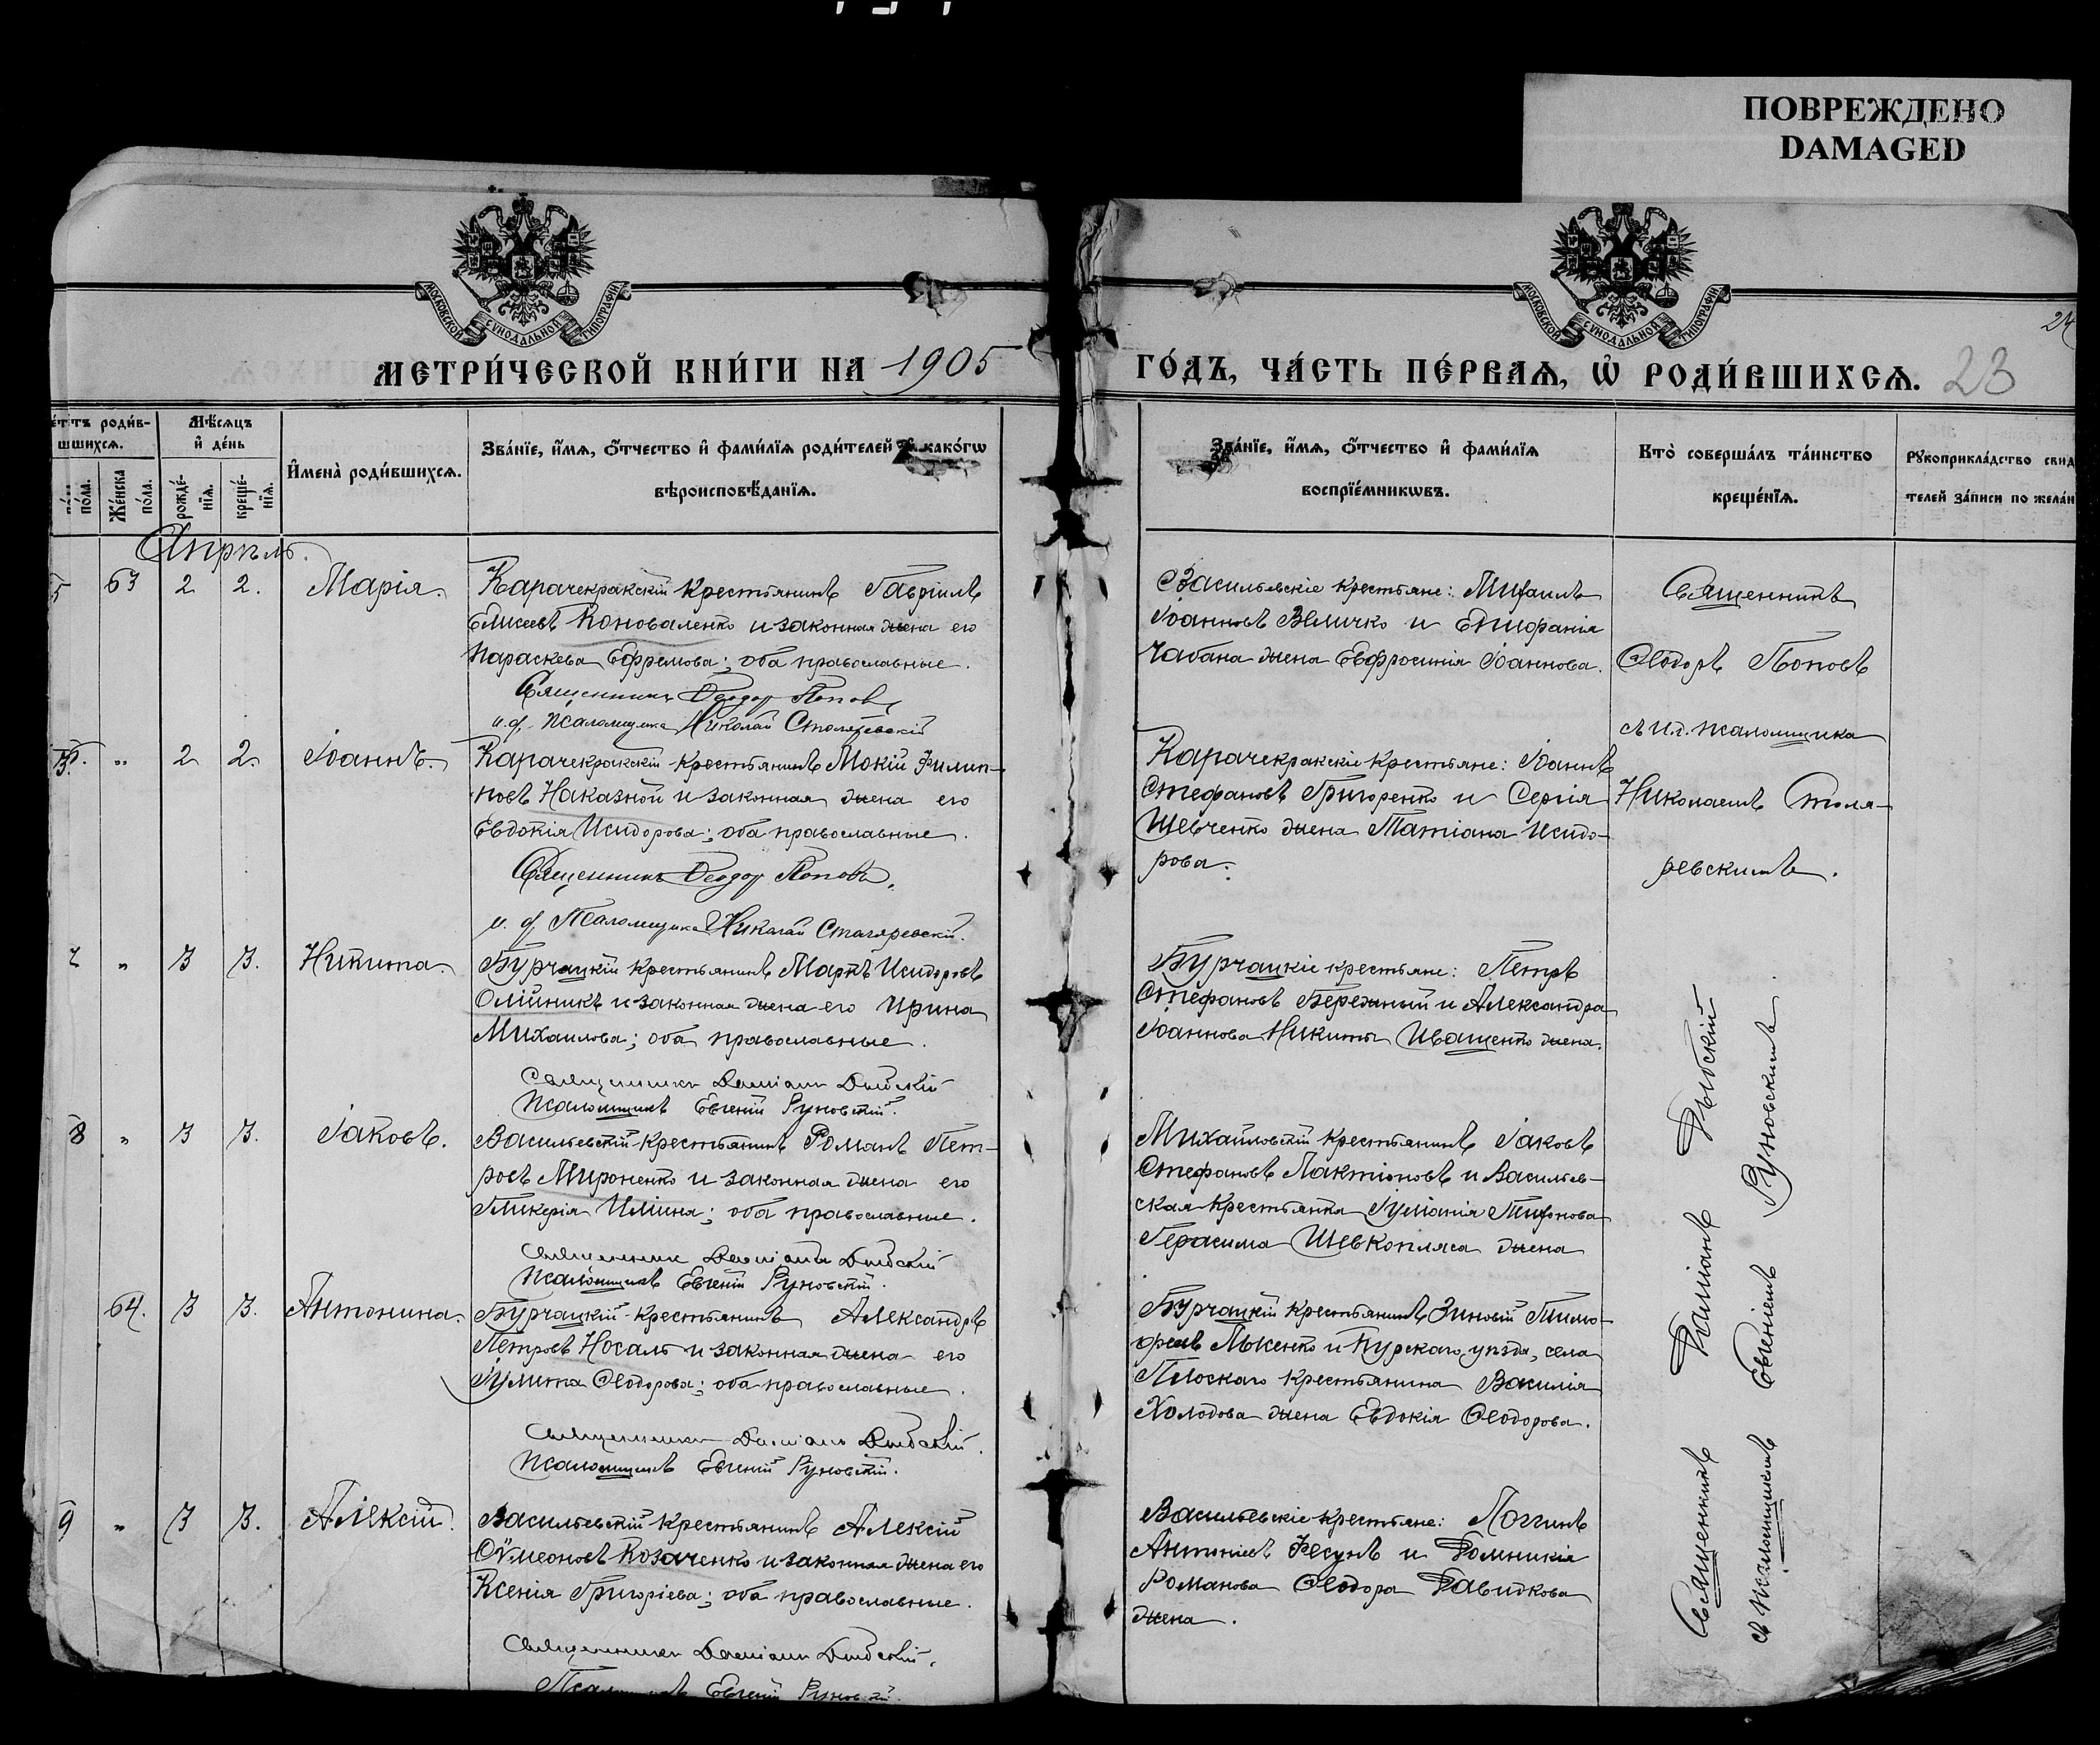 ПОВРЕЖДЕНО
DAMAGED
МОСКОВСКОЙ СѴНОДАЛЬНОЙ ТИПОГРАФІИ
МОСКОВСКОЙ СѴНОДАЛЬНОЙ ТИПОГРАФІИ
24
МЕТРИ́ЧЕСКОЙ КНИ́ГИ НА 1905
ГО́ДЪ, ЧА́СТЬ ПЕ́РВАѦ, Ѡ҆ РОДИ́ВШИХСѦ. 23
е́тъ роди́в-
шихсѧ.
Мѣ́сѧцъ
и҆ де́нь
по́ла.
Же́нска
по́ла.
рожде́-
нїѧ.
креще́-
нїѧ.
И҆мена̀ роди́вшихсѧ.
Зва́нїе, и҆́мѧ, ѻ҆́тчество и҆ фами́лїѧ роди́телей и҆ како́гѡ
вѣроисповѣ́данїѧ.
Зва́нїе, и҆́мѧ, ѻ҆́тчество и҆ фами́лїѧ
воспрїе́мникѡвъ.
Кто̀ соверша́лъ та́инство
креще́нїѧ.
Рꙋкоприкла́дство свид
телей за́писи по жела́н
Апрѣль.
5 63 2 2. Марія.
Карачекракскій крестьянинъ Гавріилъ
Елисеевъ Коноваленко и законная жена его
Параскева Ефремова; оба православные.
Священникъ Ѳеодор Попов
и. д. псаломщика Николай Столяревскій
Васильевскіе крестьяне: Михаилъ
Іоанновъ Величко и Епифанія
Чабана жена Евфросинія Іоаннова.
Священникъ
Ѳеодоръ Поповъ
съ и.д. псаломщика
Николаемъ Столя-
ревскимъ.
„ 2 2. Іоаннъ.
Карачекракскій крестьянинъ Мокій Филип-
повъ Наказной и законная жена его
Евдокія Исидорова; оба православные.
Священникъ Ѳеодор Поповъ.
и. д. Псаломщика Николай Столяревскій.
Карачекракскіе крестьяне: Іоаннъ
Стефановъ Григоренко и Сергія
Шевченко жена Татіана Исидо-
рова.
7 „ 3 3. Никита.
Бурчацкій крестьянинъ Маркъ Исидоровъ
Олійникъ и законная жена его Ирина
Михаилова; оба православные.
Священникъ Даміанъ Дыбскій
Псаломщикъ Евгеній Руновскій.
Бурчацкіе крестьяне: Петръ
Стефановъ Бережный и Александра
Іоаннова Никиты Иващенко жена.
8 „ 3 3. Іаковъ.
Васильевскій крестьянинъ Романъ Пет-
ровъ Мироненко и законная жена его
Гликерія Иліина; оба православные.
Священникъ Даміанъ Дыбскій
Псаломщикъ Евгеній Руновскій.
Михайловскій крестьянинъ Іаковъ
Стефановъ Лактіоновъ и Васильев-
ская крестьянка Іуліанія Тихонова
Герасима Шевкопляса жена
64. 3 3. Антонина.
Бурчацкій крестьянинъ Александръ
Петровъ Носаль и законная жена его
Іулита Ѳеодорова; оба православные.
Священникъ Даміанъ Дыбскій.
Псаломщикъ Евгеній Руновскій.
Бурчацкій крестьянинъ Зиновій Тимо-
феевъ Лысенко и Курскаго уѣзда, села
Плоскаго крестьянина Василія
Холодова жена Евдокія Ѳеодорова.
9 „ 3 3. Алексій.
Васильевскій крестьянинъ Алексій
Сѵмеоновъ Козаченко и законная жена его
Ксенія Григоріева; оба православные.
Священникъ Даміанъ Дыбскій.
Псаломщикъ Евгеній Руновскій.
Васильевскіе крестьяне: Логгинъ
Антоніевъ Фесунъ и Домникія
Романова Ѳеодора Давидкова
жена.
Священникъ Даміанъ Дыбскій
съ псаломщикомъ Евгеніемъ Руновскимъ.